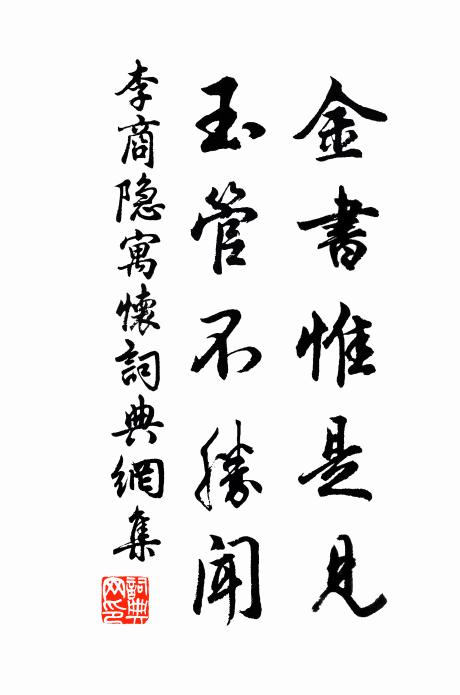 金書惟是見
玉管不勝聞
李商隐寓懷詞典網集
詞典网印